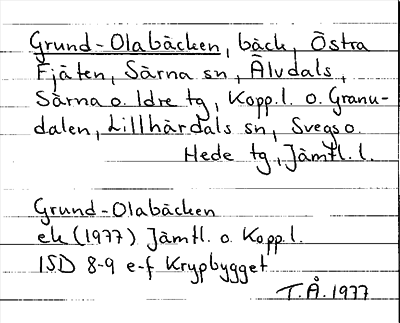 Grund-Olabäcken, bäck, Östra
Fjäten, Särna sn, Älvdals,
Särna o. Idre tg, Kopp.l. o. Granu-
dalen, Lillhärdals sn, Svegs o.
Hede tg, Jämtl. l.
Grund-Olabäcken
ek (1977) Jämtl. o. Kopp.l.
ISD 8-9 e-f Krypbygget
T.Å. 1977